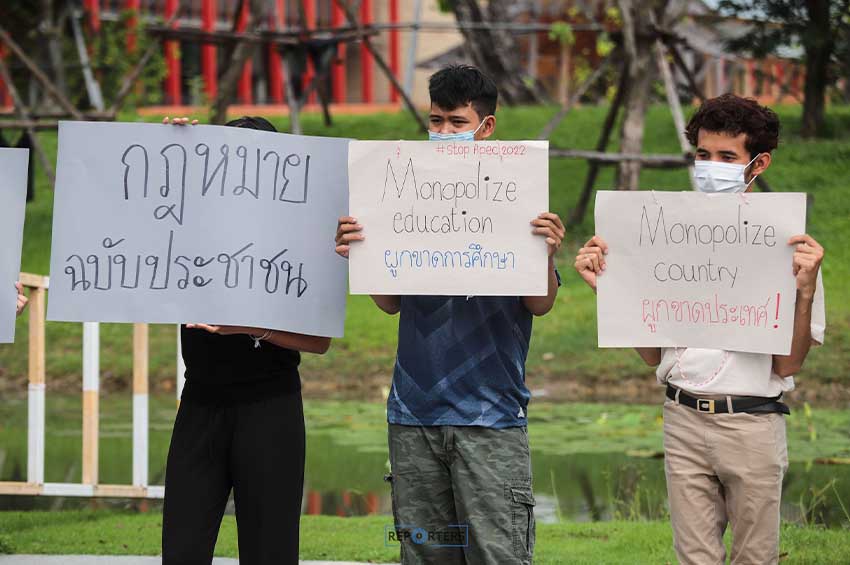 กฎหมาย
ฉบับประชาชน
#Stop Apec 2022
Monopolize
education
ผูกขาดการศึกษา
Monopolize
country
ผูกขาดประเทศ!
REPORTERS